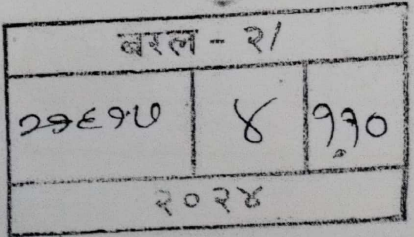 बरल - २/
२१६१७ ४ ११०
२०२४